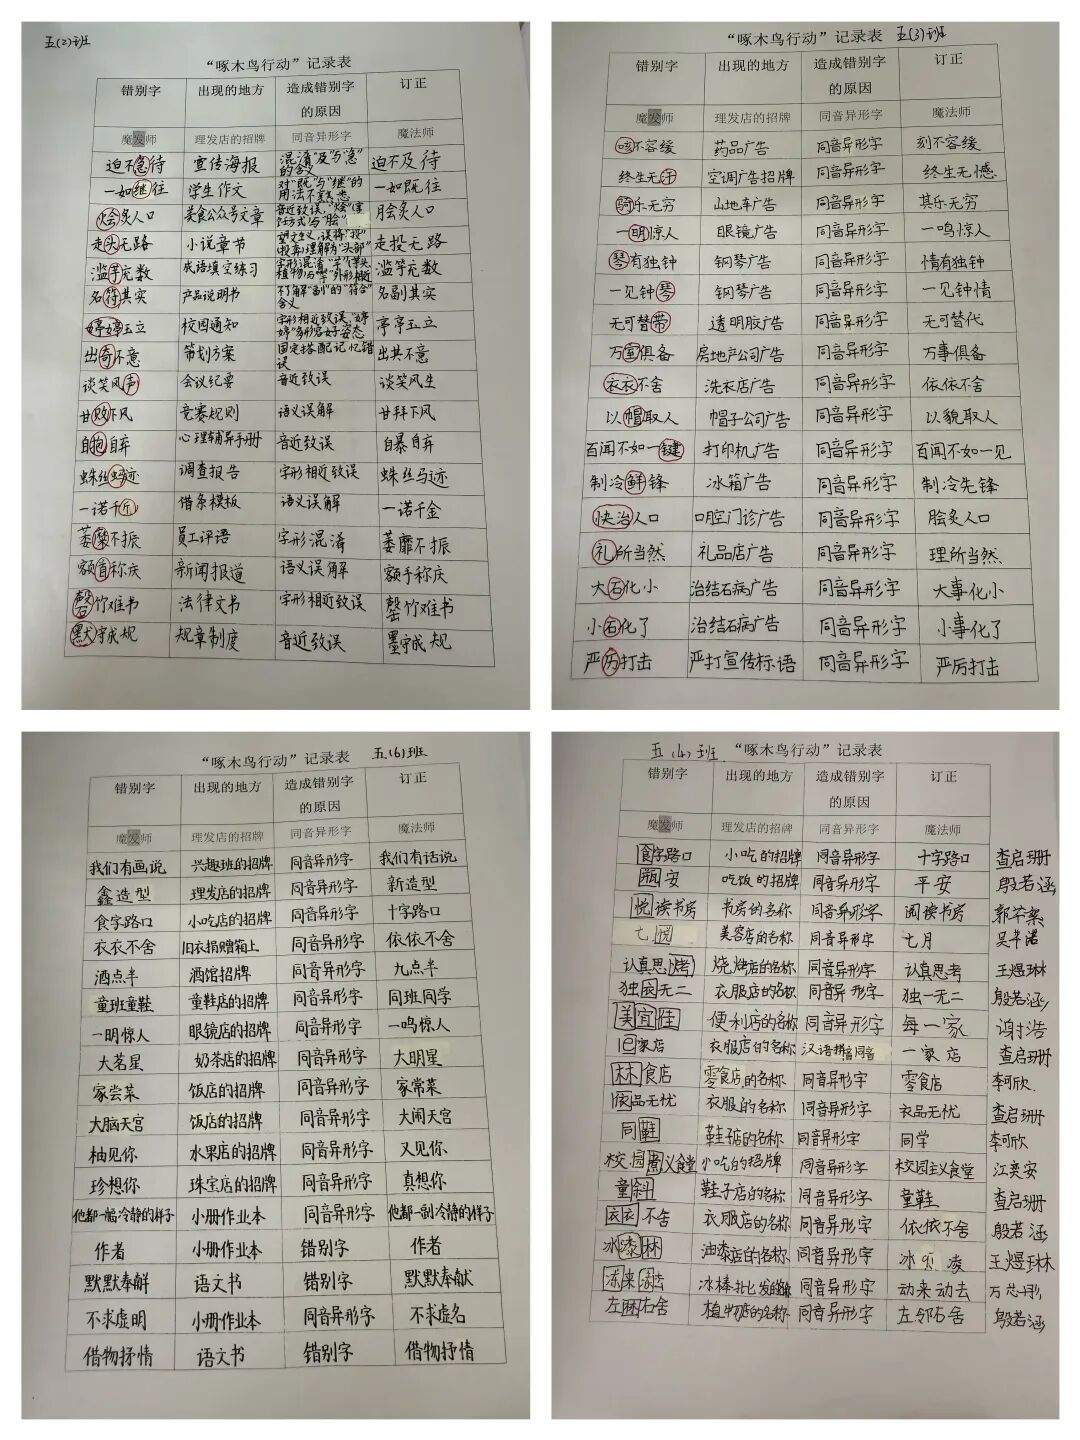 五(2)班
“啄木鸟行动”记录表
错别字 出现的地方 造成错别字的原因 订正
魔发师 理发店的招牌 同音异形字 魔法师
迫不急待 宣传海报 混淆“及”与“急”的含义 迫不及待
一如继往 学生作文 对“既”与“继”的用法不熟悉 一如既往
烩炙人口 美食公众号文章 音近致误,“烩” 方式与“脍” 脍炙人口
走头无路 小说章节 望文生义,误将“投”(投奔)理解为“头部” 走投无路
滥芋充数 成语填空练习 字形混淆 滥竽充数
名符其实 产品说明书 不了解“副”的“符合”含义 名副其实
婷婷玉立 校园通知 字形相近致误,“婷婷”多形容女好姿态 亭亭玉立
出奇不意 策划方案 固定搭配记忆错误 出其不意
谈笑风声 会议纪要 音近致误 谈笑风生
甘败下风 竞赛规则 语义误解 甘拜下风
自抱自弃 心理辅导手册 音近致误 自暴自弃
蛛丝蚂迹 调查报告 字形相近致误 蛛丝马迹
一诺千斤 借条模板 语义误解 一诺千金
萎糜不振 员工评语 字形混淆 萎靡不振
额首称庆 新闻报道 语义误解 额手称庆
罄竹难书 法律文书 字形相近致误 罄竹难书
默守成规 规章制度 音近致误 墨守成规
“啄木鸟行动”记录表 五(3)班
错别字 出现的地方 造成错别字的原因 订正
魔发师 理发店的招牌 同音异形字 魔法师
咳不容缓 药品广告 同音异形字 刻不容缓
终生无汗 空调广告招牌 同音异形字 终生无憾
骑乐无穷 山地车广告 同音异形字 其乐无穷
一明惊人 眼镜广告 同音异形字 一鸣惊人
琴有独钟 钢琴广告 同音异形字 情有独钟
一见钟琴 钢琴广告 同音异形字 一见钟情
无可替带 透明胶广告 同音异形字 无可替代
万室俱备 房地产公司广告 同音异形字 万事俱备
衣衣不舍 洗衣店广告 同音异形字 依依不舍
以帽取人 帽子公司广告 同音异形字 以貌取人
百闻不如一键 打印机广告 同音异形字 百闻不如一见
制冷鲜锋 冰箱广告 同音异形字 制冷先锋
快治人口 口腔门诊广告 同音异形字 脍炙人口
礼所当然 礼品店广告 同音异形字 理所当然
大石化小 治结石病广告 同音异形字 大事化小
小石化了 治结石病广告 同音异形字 小事化了
严历打击 严打宣传标语 同音异形字 严厉打击
“啄木鸟行动”记录表 五(6)班
错别字 出现的地方 造成错别字的原因 订正
魔发师 理发店的招牌 同音异形字 魔法师
我们有画说 兴趣班的招牌 同音异形字 我们有话说
鑫造型 理发店的招牌 同音异形字 新造型
食字路口 小吃店的招牌 同音异形字 十字路口
衣衣不舍 旧衣捐赠箱上 同音异形字 依依不舍
酒点半 酒馆招牌 同音异形字 九点半
童班童鞋 童鞋店的招牌 同音异形字 同班同学
一明惊人 眼镜店的招牌 同音异形字 一鸣惊人
大茗星 奶茶店的招牌 同音异形字 大明星
家尝菜 饭店的招牌 同音异形字 家常菜
大脑天宫 饭店的招牌 同音异形字 大闹天宫
柚见你 水果店的招牌 同音异形字 又见你
珍想你 珠宝店的招牌 同音异形字 真想你
他都一幅冷静的样子 小册作业本 同音异形字 他都一副冷静的样子
作者 小册作业本 错别字 作者
默默奉鲜 语文书 错别字 默默奉献
不求虚明 小册作业本 同音异形字 不求虚名
借物抒情 语文书 错别字 借物抒情
五(4)班 “啄木鸟行动”记录表
错别字 出现的地方 造成错别字的原因 订正
魔发师 理发店的招牌 同音异形字 魔法师
食字路口 小吃的招牌 同音异形字 十字路口 查启珊
瓶安 吃饭的招牌 同音异形字 平安 殷若涵
悦读书房 书房的名称 同音异形字 阅读书房
七阅 美容店的名称 同音异形字 七月
认真思烤 烧烤店的名称 同音异形字 认真思考 王煜琳
独衣无二 衣服店的名称 同音异形字 独一无二 殷若涵
美宜佳 便利店的名称 同音异形字 每一家 谢浩
衣家店 衣服店的名称 汉语拼音同音 一家店 查启珊
林食店 零食店的名称 同音异形字 零食店 李可欣
依品无忧 衣服的名称 同音异形字 衣品无忧 查启珊
同鞋 鞋店的名称 同音异形字 同学 李可欣
校园煮义食堂 小吃的招牌 同音异形字 校园主义食堂 江奕安
童斜 鞋子店的名称 同音异形字 童鞋 查启珊
衣衣不舍 衣服店的名称 同音异形字 依依不舍 殷若涵
冰漆林 油漆店的名称 同音异形字 冰 凌 王煜琳
冻来冻去 冰棒批发的名称 同音异形字 动来动去
左林右舍 植物店的名称 同音异形字 左邻右舍 殷若涵